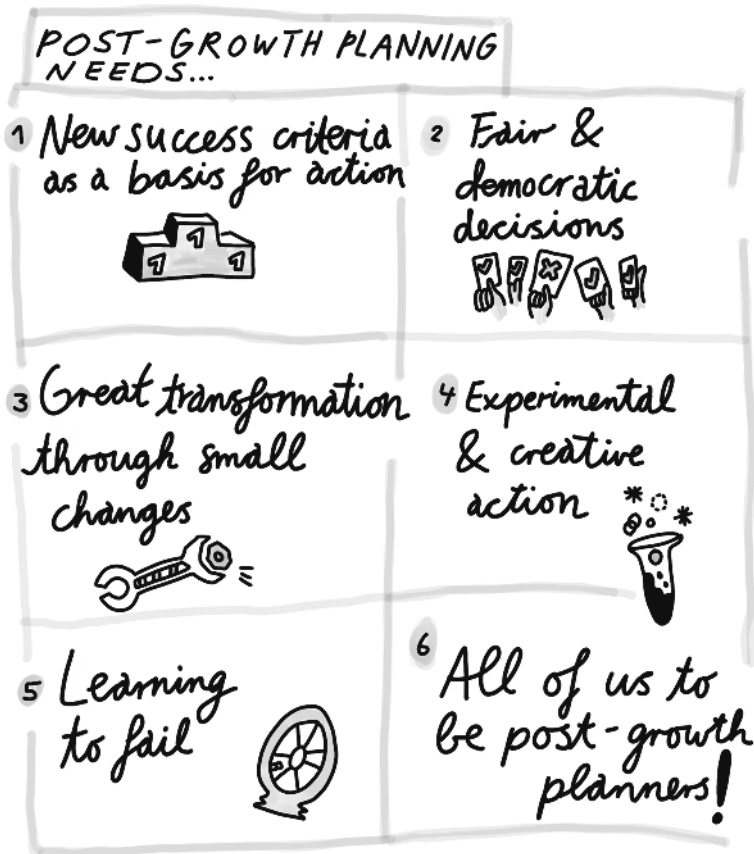 POST-GROWTH PLANNING
NEEDS...
1 New success criteria
as a basis for action
1
1 1
2 Fair &
democratic
decisions
3 Great transformation
through small
changes
4 Experimental
& creative
action
5 Learning
to fail
6 All of us to
be post-growth
planners!